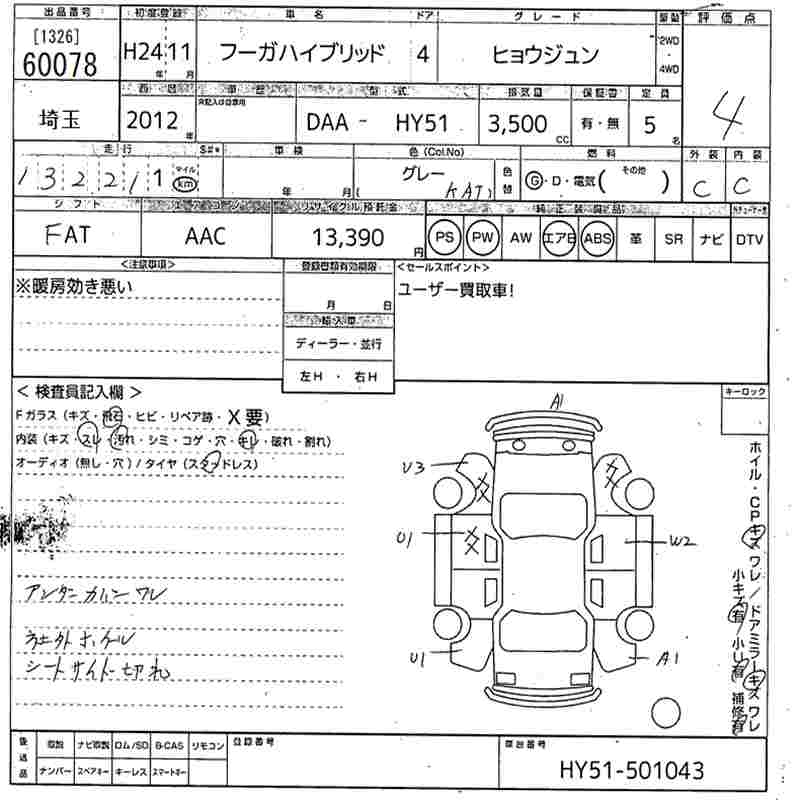 出品番号 初度登録 車名 ドア グレード 駆動 評価点
[1326]
60078 H24 11 フーガハイブリッド 4 ヒョウジュン 2WD 4WD 4
年 月
西暦 車歴 型式 排気量 保証書 定員
埼玉 2012年 DAA - HY51 3,500 CC 有・無 5 名
走行 車検 色(Col.No) 燃料 外装 内装
132,211 マイル km 年 月 グレー (KAD) 色替 G・D・電気( その他 ) C C
シフト エアコン リサイクル預託金 純正装備品
FAT AAC 13,390 円 PS PW AW エアB ABS 革 SR ナビ DTV
<注意事項> 登録書類有効期限 <セールスポイント>
※暖房効き悪い 月 日 ユーザー買取車!
輸入車
ディーラー・並行
左H ・ 右H
< 検査員記入欄 > キーロック
Fガラス (キズ・飛石・ヒビ・リペア跡・X要)
内装 (キズ・スレ・汚れ・シミ・コゲ・穴・キレ・破れ・割れ)
オーディオ (無し・穴) / タイヤ (スタッドレス)
A1
U3
U1 W2
U1 A1
ホイル・CPキズ ワレ / ドアミラーキズ ワレ
小キズ有 / 小U有 補修有
アンダーカバーワレ
シートサイド切れ
後送品 取説 ナビ取説 ロム/SD B-CAS リモコン 登録番号 車台番号
ナンバー スペアキー キーレス スマートキー HY51-501043